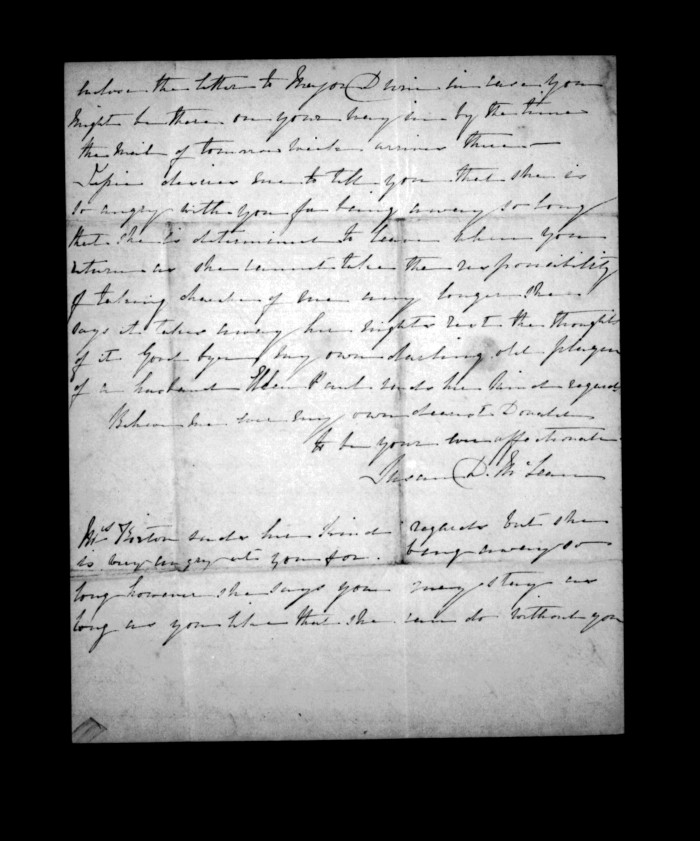 enclose the letter to Major Durie in case you
might be there on your way in by the time
the mail of tomorrow week arrives there —
desires me to tell you that she is
so angry with you for being away so long
that she is determined to leave when you
return as she cannot take the responsibility
of taking charge of me any longer she
says it takes away her nights rest the thoughts
of it Good bye my own darling old plague
of a husband Ellen Paul sends her kind regards
Believe me ever my own dearest Donald
to be your ever affectionate
Susan D. McLean
Mrs sends her kind regards but she
is very angry at you for being away so
long however she says you may stay as
long as you like that she can do without you